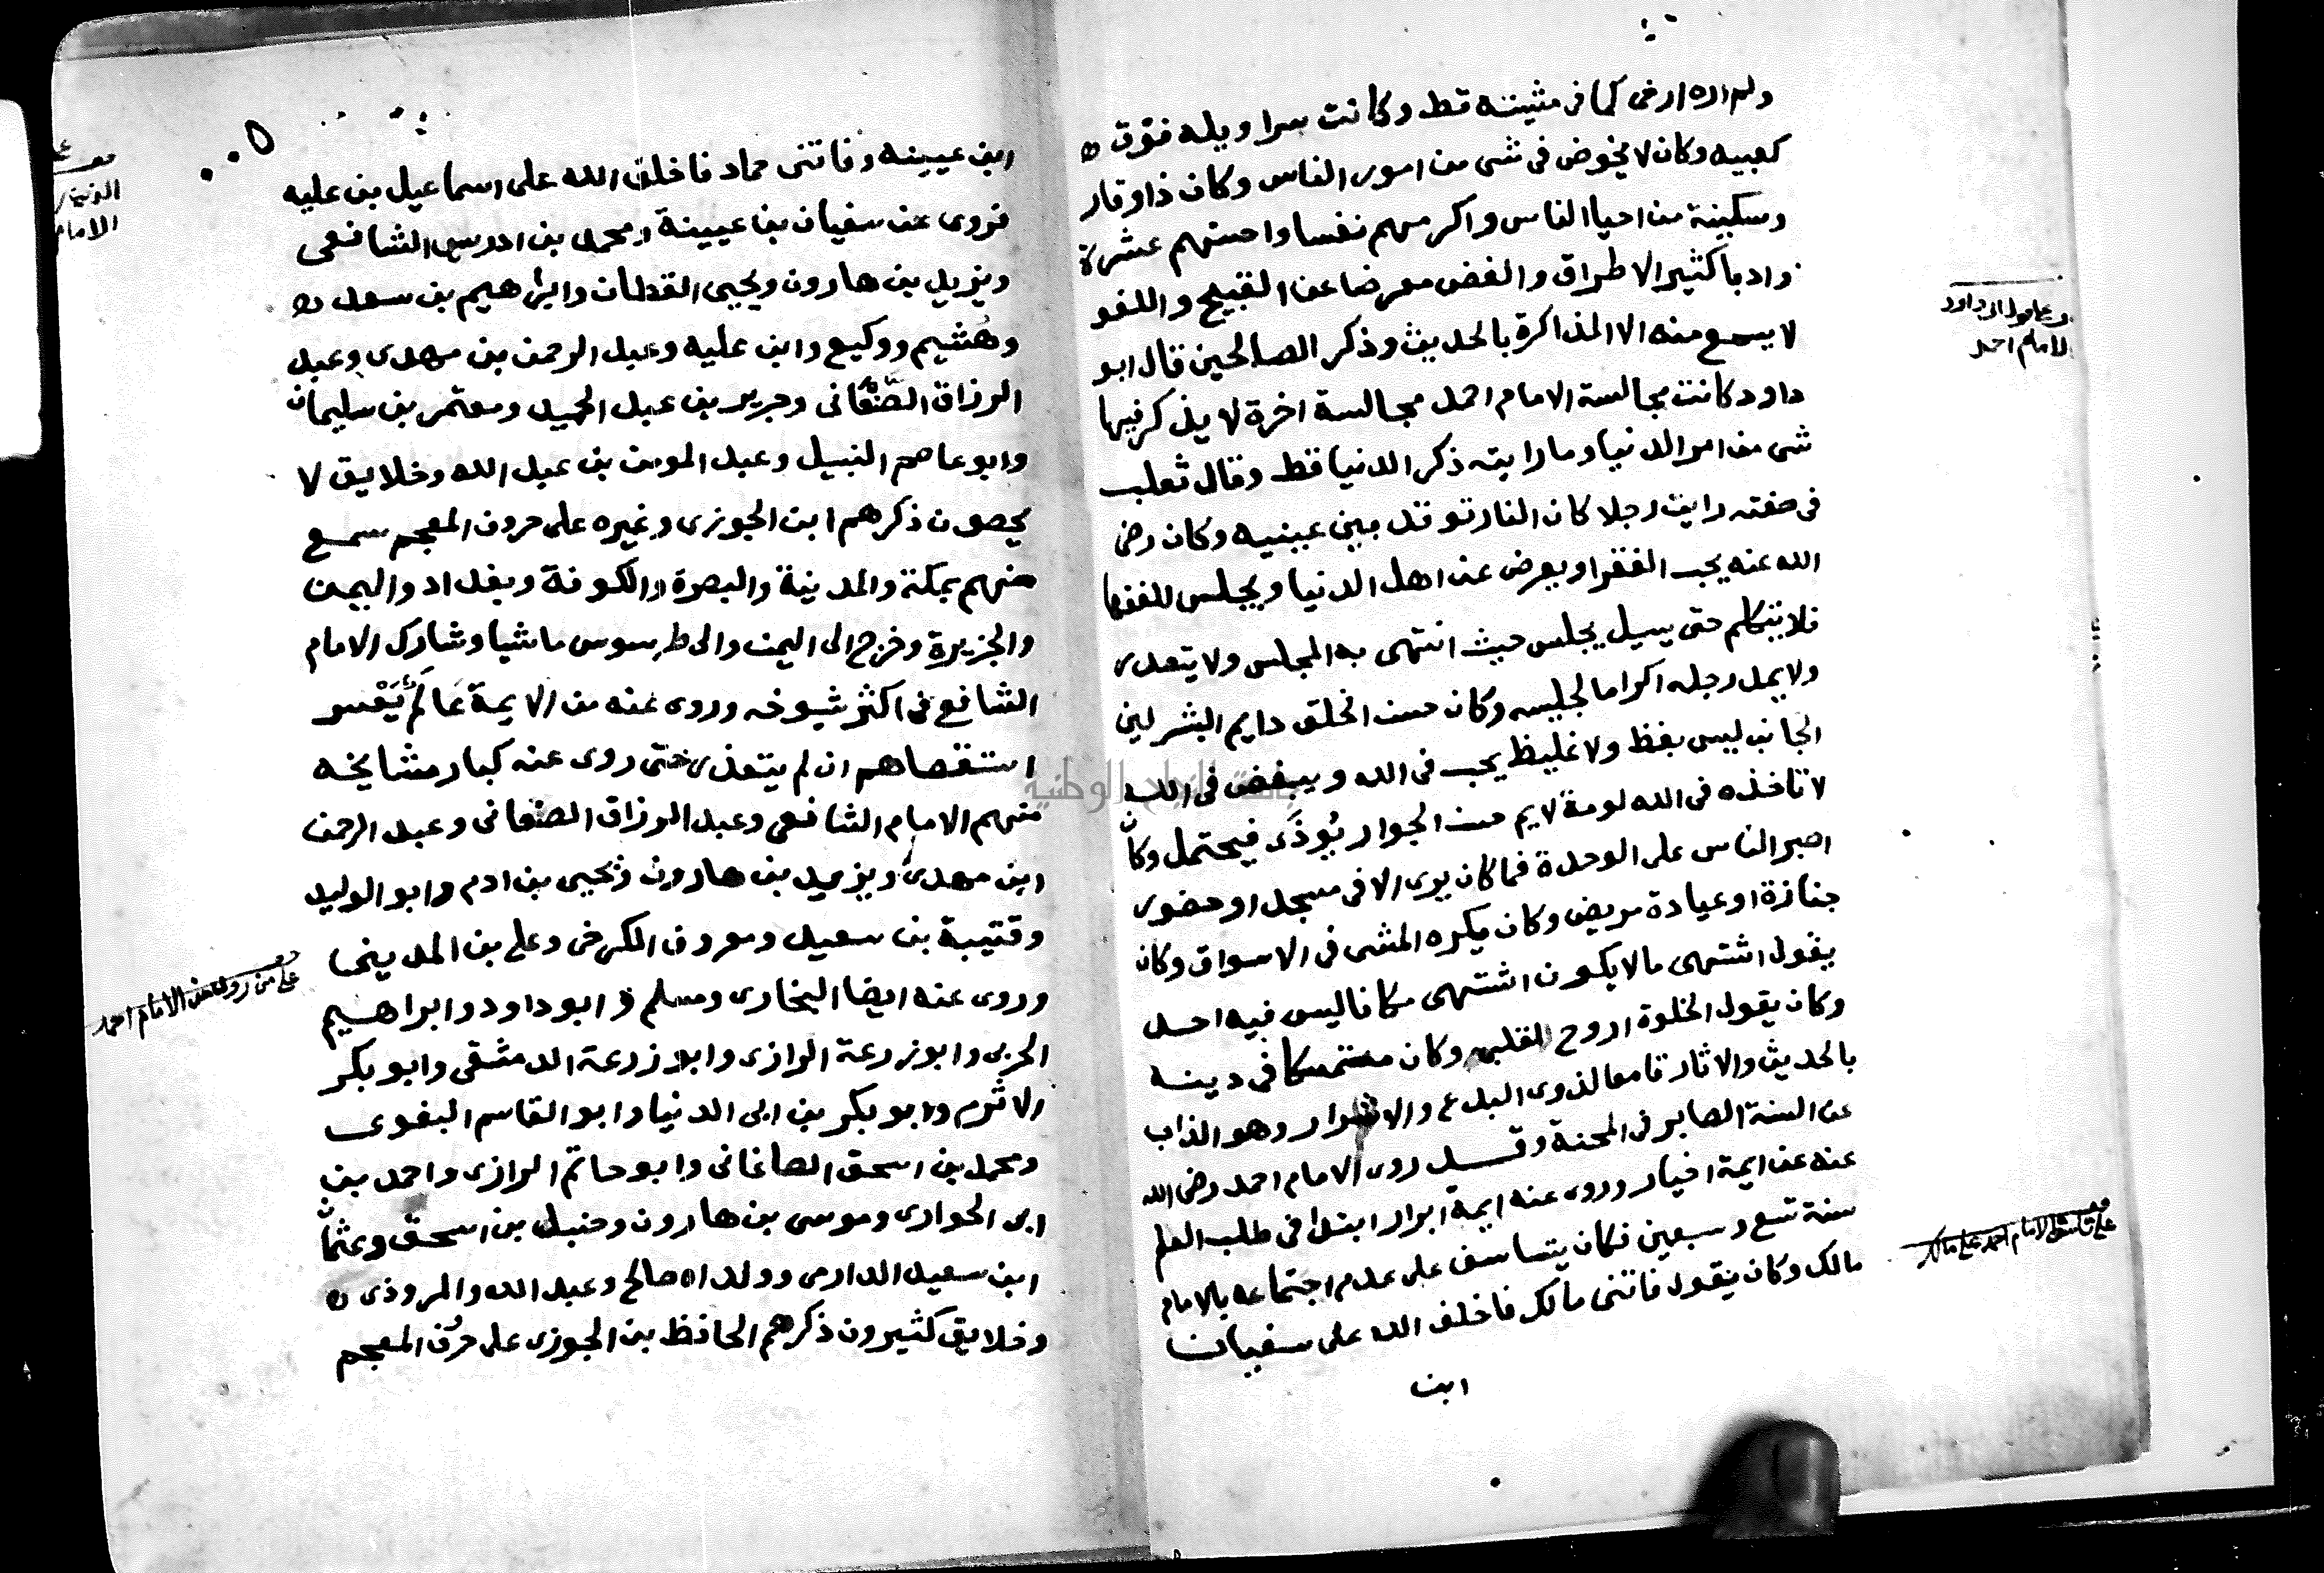 ولم اره ارخى كما فى مشيته قط وكانت سراويله فوق
كعبيه وكان لا يخوض فى شى من امور الناس وكان ذا وقار
وسكينة من احيا الناس واكرمهم نفسا واحسنهم عشرة
وادبا كثير الاطراق والغض معرضا عن القبيح واللغو
لا يسمع منه الا المذاكرة بالحديث وذكر الصالحين قال ابو
داود كانت مجالسة الامام احمد مجالسة اخرة لا يذكر فيها
شى من امر الدنيا وما رايته ذكر الدنيا قط وقال ثعلب
فى صفته رايت رجلا كان النار توقد بين عينيه وكان رضى
الله عنه يحب الفقرا ويعرض عن اهل الدنيا ويجلس للفقها
فلا يتكلم حتى يسيل يجلس حيث انتهى به المجلس ولا يتعدى
ولا يمد رجله اكراما لجليسه وكان حسن الخلق دايم البشر لين
الجانب ليس بفظ ولا غليظ يحب فى الله ويبغض فى الله
لا تاخذه فى الله لومة لايم حسن الجوار يُوذَى فيحتمل وكان
اصبر الناس على الوحدة فما كان يرى الا فى مسجد او حضور
جنازة او عيادة مريض وكان يكره المشى فى الاسواق وكان
يقول اشتهى ما لا يكون اشتهى مكانا ليس فيه احد
وكان يقول الخلوة اروح لقلبى وكان متمسكا فى دينه
بالحديث والاثار قامعا لذوى البدع والاشرار وهو الذاب
عن السنة الصابر فى المحنة وقد روى الامام احمد رضى الله
عنه عن ايمة اخيار وروى عنه ايمة ابرار ابتدا فى طلب العلم
سنة تسع وسبعين فكان يتاسف على عدم اجتماعه بالامام
مالك وكان يقول فاتنى مالك فاخلف الله على سفيان
ابن
على قول ابى داود
الامام احمد
على تاسف الامام احمد على مالك
ابن عيينه وفاتنى حماد فاخلف الله على اسماعيل بن عليه
فروى عن سفيان بن عيينة ومحمد بن ادريس الشافعى
ويزيد بن هارون ويحيى القطان وابراهيم بن سعد
وهُشيم ووكيع وابن عليه وعبد الرحمن بن مهدى وعبد
الرزاق الصَّنْعَانى وجرير بن عبد الحميد ومعتمر بن سليمان
وابو عاصم النبيل وعبد المومن بن عبد الله وخلايق لا
يحصون ذكرهم ابن الجوزى وغيره على حروف المعجم سمع
منهم بمكة والمدينة والبصرة والكوفة وبغداد واليمن
والجزيرة وخرج الى اليمن والى طرسوس ماشيا وشارك الامام
الشافعى فى اكثر شيوخه وروى عنه من الايمة عَالَمٌ يَعْسر
استقصاهم ان لم يتعذر حتى روى عنه كبار مشايخه
منهم الامام الشافعى وعبد الرزاق الصنعانى وعبد الرحمن
ابن مهدى ويزيد بن هارون ويحيى بن ادم وابو الوليد
وقتيبة بن سعيد ومعروف الكرخى وعلى بن المدينى
وروى عنه ايضا البخارى ومسلم وابو داود وابراهيم
الحربى وابو زرعة الرازى وابو زرعة الدمشقى وابو بكر
الاثرم وابو بكر بن ابى الدنيا وابو القاسم البغوى
ومحمد بن اسحق الصاغانى وابو حاتم الرازى واحمد بن
ابى الحوارى وموسى بن هارون وحنبل بن اسحق وعثمان
ابن سعيد الدارمى وولداه صالح وعبد الله والمروذى
وخلايق كثيرون ذكرهم الحافظ بن الجوزى على حرُف المعجم
على من روى عن الامام احمد
الامام
جامعة النجاح الوطنية